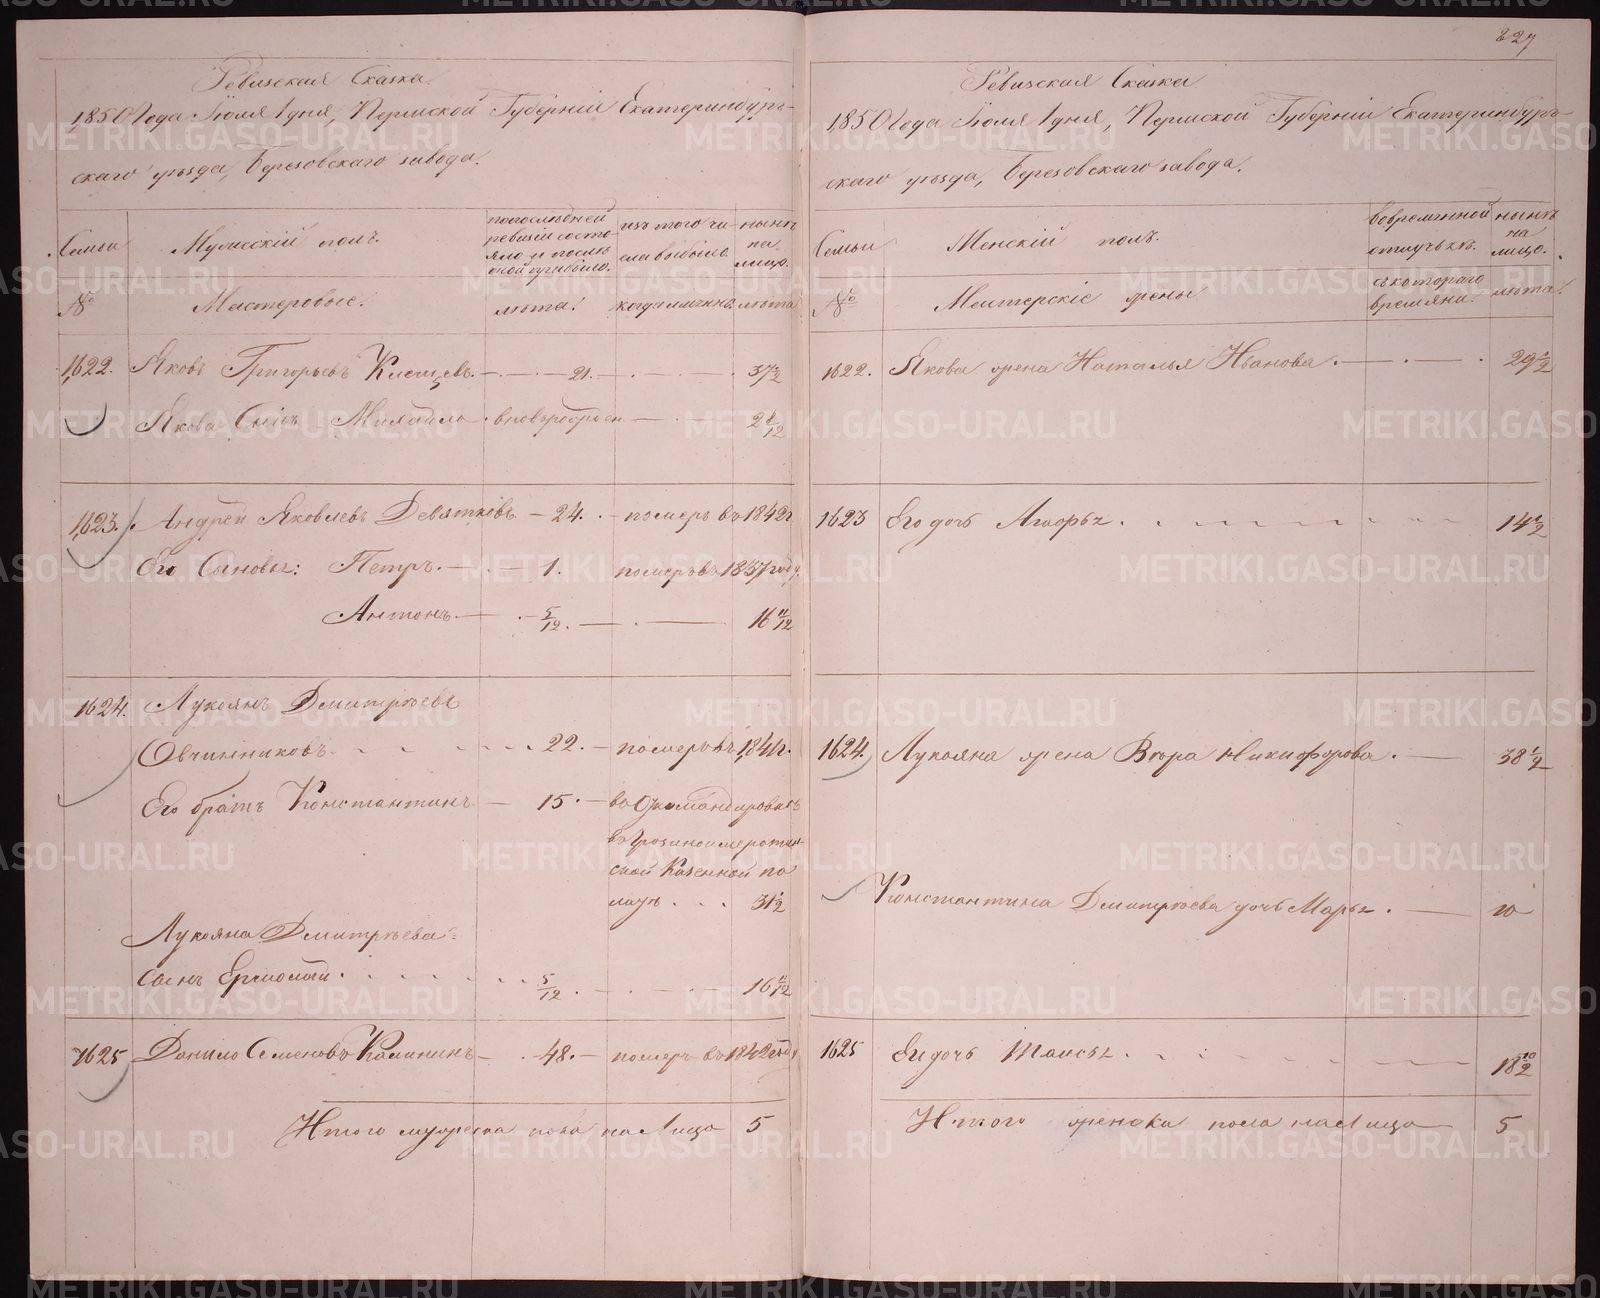 827
Ревизская Сказка.
1850 года Іюля 1 дня, Пермской Губерніи Екатеринбург-
скаго уѣзда, Березовскаго завода.
Семьи
Мужескій полъ.
по последней ревизіи состо-
яло и после
оной прибыло.
изъ того чи-
сла выбыло.
нынѣ
на
лицо.
№
Мастеровые.
лѣта.
когда именно
лѣта
1622. Яковъ Григорьевъ Клещевъ. — 21. — 37 1/2
Якова Сынъ Михайло
2 8/12
1623. Андрей Яковлевъ Девятковъ — 24. — померъ въ 1842 г.
Его Сыновья: Петръ. — 1. померъ въ 1837 году.
Антонъ — 5/12. — 16 11/12
1624. Лукоянъ Дмитріевъ
Овчинниковъ — 22. — померъ въ 1841 г.
Его братъ Константинъ — 15. — въ Откомандировкѣ
въ
ской Казенной па
латѣ 31 1/2
Лукояна Дмитріева
сынъ Ермолай 5/12 — 16 11/12
1625 Данило Семеновъ Калининъ — 48. — померъ въ 1842 году
Итого мужеска пола на лицо 5
Ревизская Сказка
1850 года Іюля 1 дня, Пермской Губерніи Екатеринбург-
скаго уѣзда, Березовскаго завода.
Семьи
Женскій полъ.
во временной
отлучкѣ.
нынѣ
на
лицо.
№
жены
съ котораго
времяни.
лѣта.
1622. Якова жена Наталья Иванова. — 29 1/2
1623 Его дочь — 14 1/2
1624. Лукояна жена Вѣра Никифорова. — 38 1/2
Константина Дмитріева дочь Марья. — 10
1625 Его дочь Таисья. — 18 10/12
Итого женска пола на лицо 5
METRIKI.GASO-URAL.RU